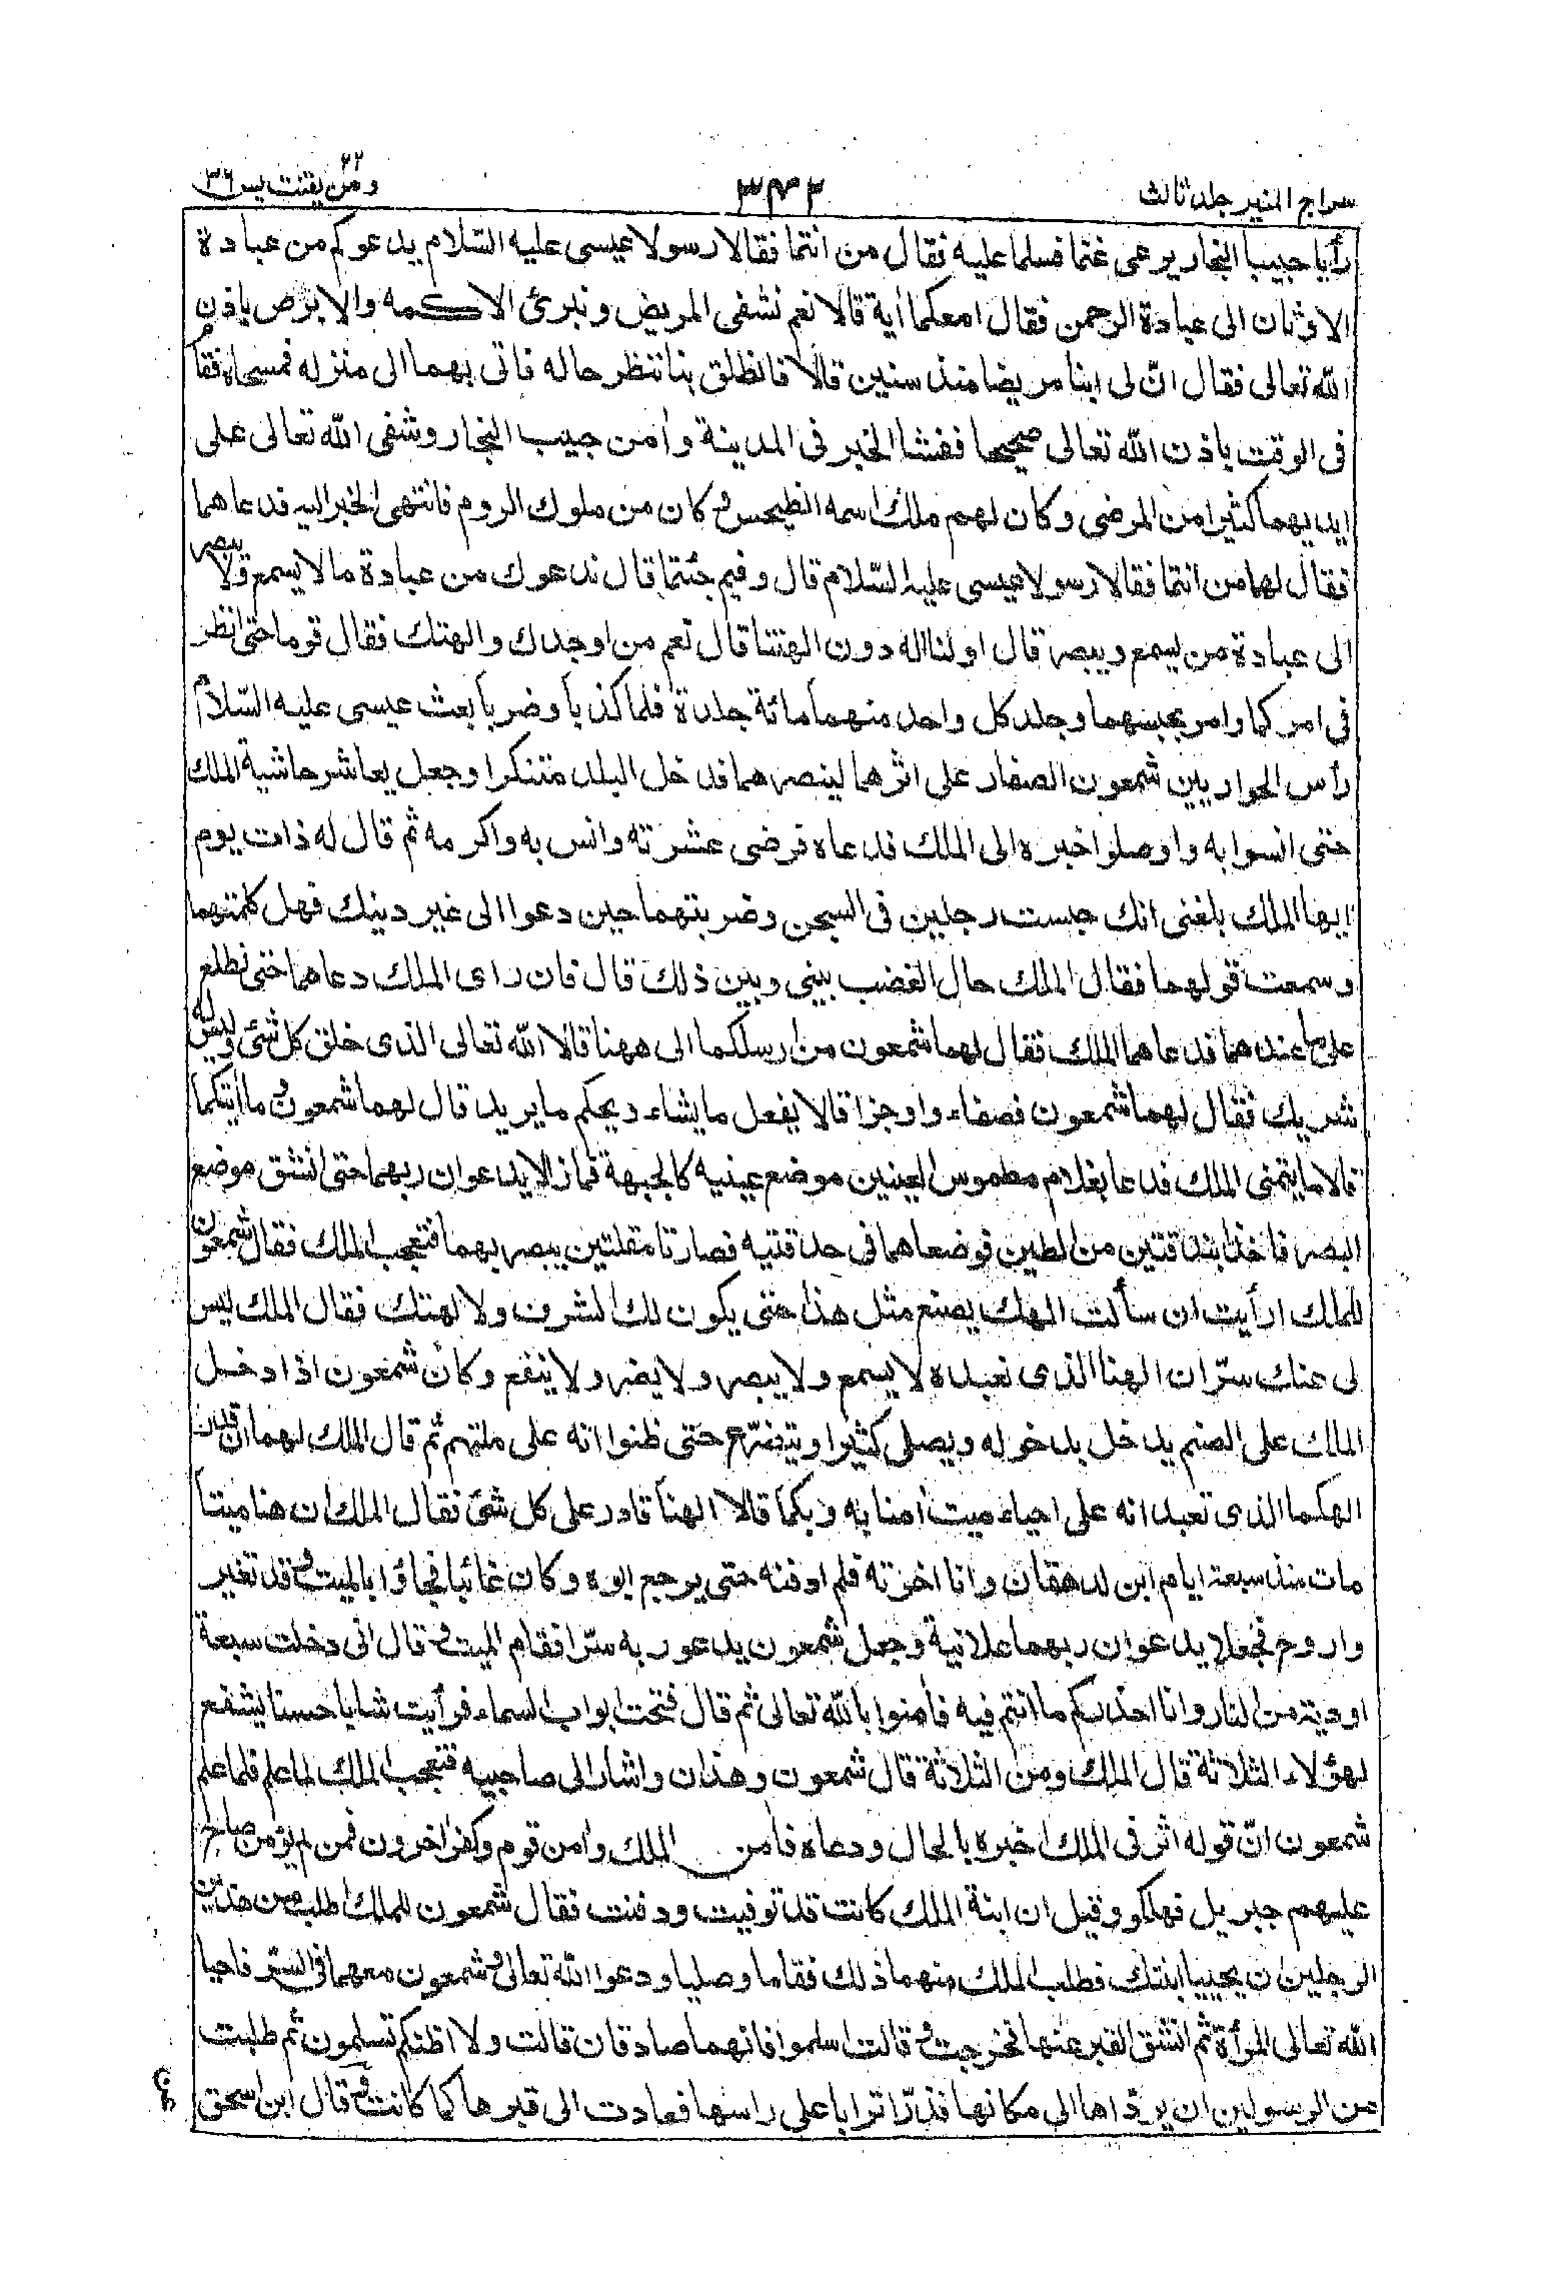 سراج المنير جلد ثالث
٣٤٣
ومن يقنت ٢٢ يس ٣٦
رأيا حبيبا النجار يرعى غنما فسلما عليه فقال من انتما فقالا رسولا عيسى عليه السّلام يدعوكم من عبادة
الاوثان الى عبادة الرحمن فقال امعكما أية قالا نعم نشفى المريض ونبرئ الاكمه والابرص باذن
الله تعالى فقال انّ لى ابنا مريضا منذ سنين قالا فانطلق بنا ننظر حاله فاتى بهما الى منزله فمسحاه فقام
فى الوقت باذن الله تعالى صحيحا ففشا الخبر فى المدينة وأمن حبيب النجار وشفى الله تعالى على
ايديهما كثيرا من المرضى وكان لهم ملك اسمه انطيخس وكان من ملوك الروم فانتهى الخبر اليه فدعاهما
فقال لهما من انتما فقالا رسولا عيسى عليه السّلام قال وفيم جئتما قال ندعوك من عبادة ما لا يسمع ولا يبصر
الى عبادة من يسمع ويبصر قال اولنا اله دون الهتنا قال نعم من اوجدك والهتك فقال قوما حتى انظر
فى امركما وامر بحبسهما وجلد كل واحد منهما مائة جلدة فلما كذبا وضربا بعث عيسى عليه السّلام
رأس الحواريين شمعون الصفار على اثرهما لينصرهما فدخل البلد متنكرا وجعل يعاشر حاشية الملك
حتى انسوا به واوصلوا خبره الى الملك فدعاه فرضى عشرته وانس به واكرمه ثم قال له ذات يوم
ايها الملك بلغنى انك حبست رجلين فى السجن وضربتهما حين دعوا الى غير دينك فهل كلمتهما
وسمعت قولهما فقال الملك حال الغضب بينى وبين ذلك قال فان راى الملك دعاهما حتى نطلع
على ما عندهما فدعاهما الملك فقال لهما شمعون من ارسلكما الى ههنا قالا الله تعالى الذى خلق كل شئ وليس له
شريك فقال لهما شمعون فصفاه واوجزا قالا يفعل ما يشاء ويحكم ما يريد قال لهما شمعون وما أيتكما
قالا ما يتمنى الملك فدعا بغلام مطموس العينين موضع عينيه كالجبهة فما زالا يدعوان ربهما حتى انشق موضع
البصر فاخذا بندقتين من الطين فوضعاهما فى حدقتيه فصارتا مقلتين يبصر بهما فتعجب الملك فقال شمعون
للملك ارأيت ان سألت الهك يصنع مثل هذا حتى يكون لك الشرف ولالهتك فقال الملك ليس
لى عنك سرّ ان الهنا الذى نعبده لا يسمع ولا يبصر ولا يضر ولا ينفع وكان شمعون اذا دخل
الملك على الصنم يدخل بدخوله ويصلى كثيرا ويتضرّع حتى ظنوا انه على ملتهم ثم قال الملك لهما ان قدر
الهكما الذى نعبدانه على احياء ميت أمنا به وبكما قالا الهنا قادر على كل شئ فقال الملك ان هنا ميتا
مات منذ سبعة ايام ابن لدهقان وانا اخرته فلم ادفنه حتى يرجع ابوه وكان غائبا فجاؤا بالميت وقد تغير
واروح فجعلا يدعوان ربهما علانية وجعل شمعون يدعو ربه سرّا فقام الميت وقال انى دخلت سبعة
اودية من النار وانا احذركم ما انتم فيه فأمنوا بالله تعالى ثم قال فتحت ابواب السماء فرأيت شابا حسنا يشفع
لهؤلاء الثلاثة قال الملك ومن الثلاثة قال شمعون وهذان واشار الى صاحبيه فتعجب الملك لما علم فلما علم
شمعون انّ قوله اثر فى الملك اخبره بالحال ودعاه فأمن الملك وأمن قوم وكفر اخرون فمن لم يؤمن صاح
عليهم جبريل فهلكوا وقيل ان ابنة الملك كانت قد توفيت ودفنت فقال شمعون للملك اطلب من هذين
الرجلين ان يحييا ابنتك فطلب الملك منهما ذلك فقاما وصليا ودعوا الله تعالى وشمعون معهما فى السرّ فاحيا
الله تعالى المرأة ثم انشق القبر عنها فخرجت وقالت اسلموا فانهما صادقان قالت ولا اظنكم تسلمون ثم طلبت
من الرسولين ان يردّاها الى مكانها فذرّا ترابا على راسها فعادت الى قبرها كما كانت وقال ابن اسحق